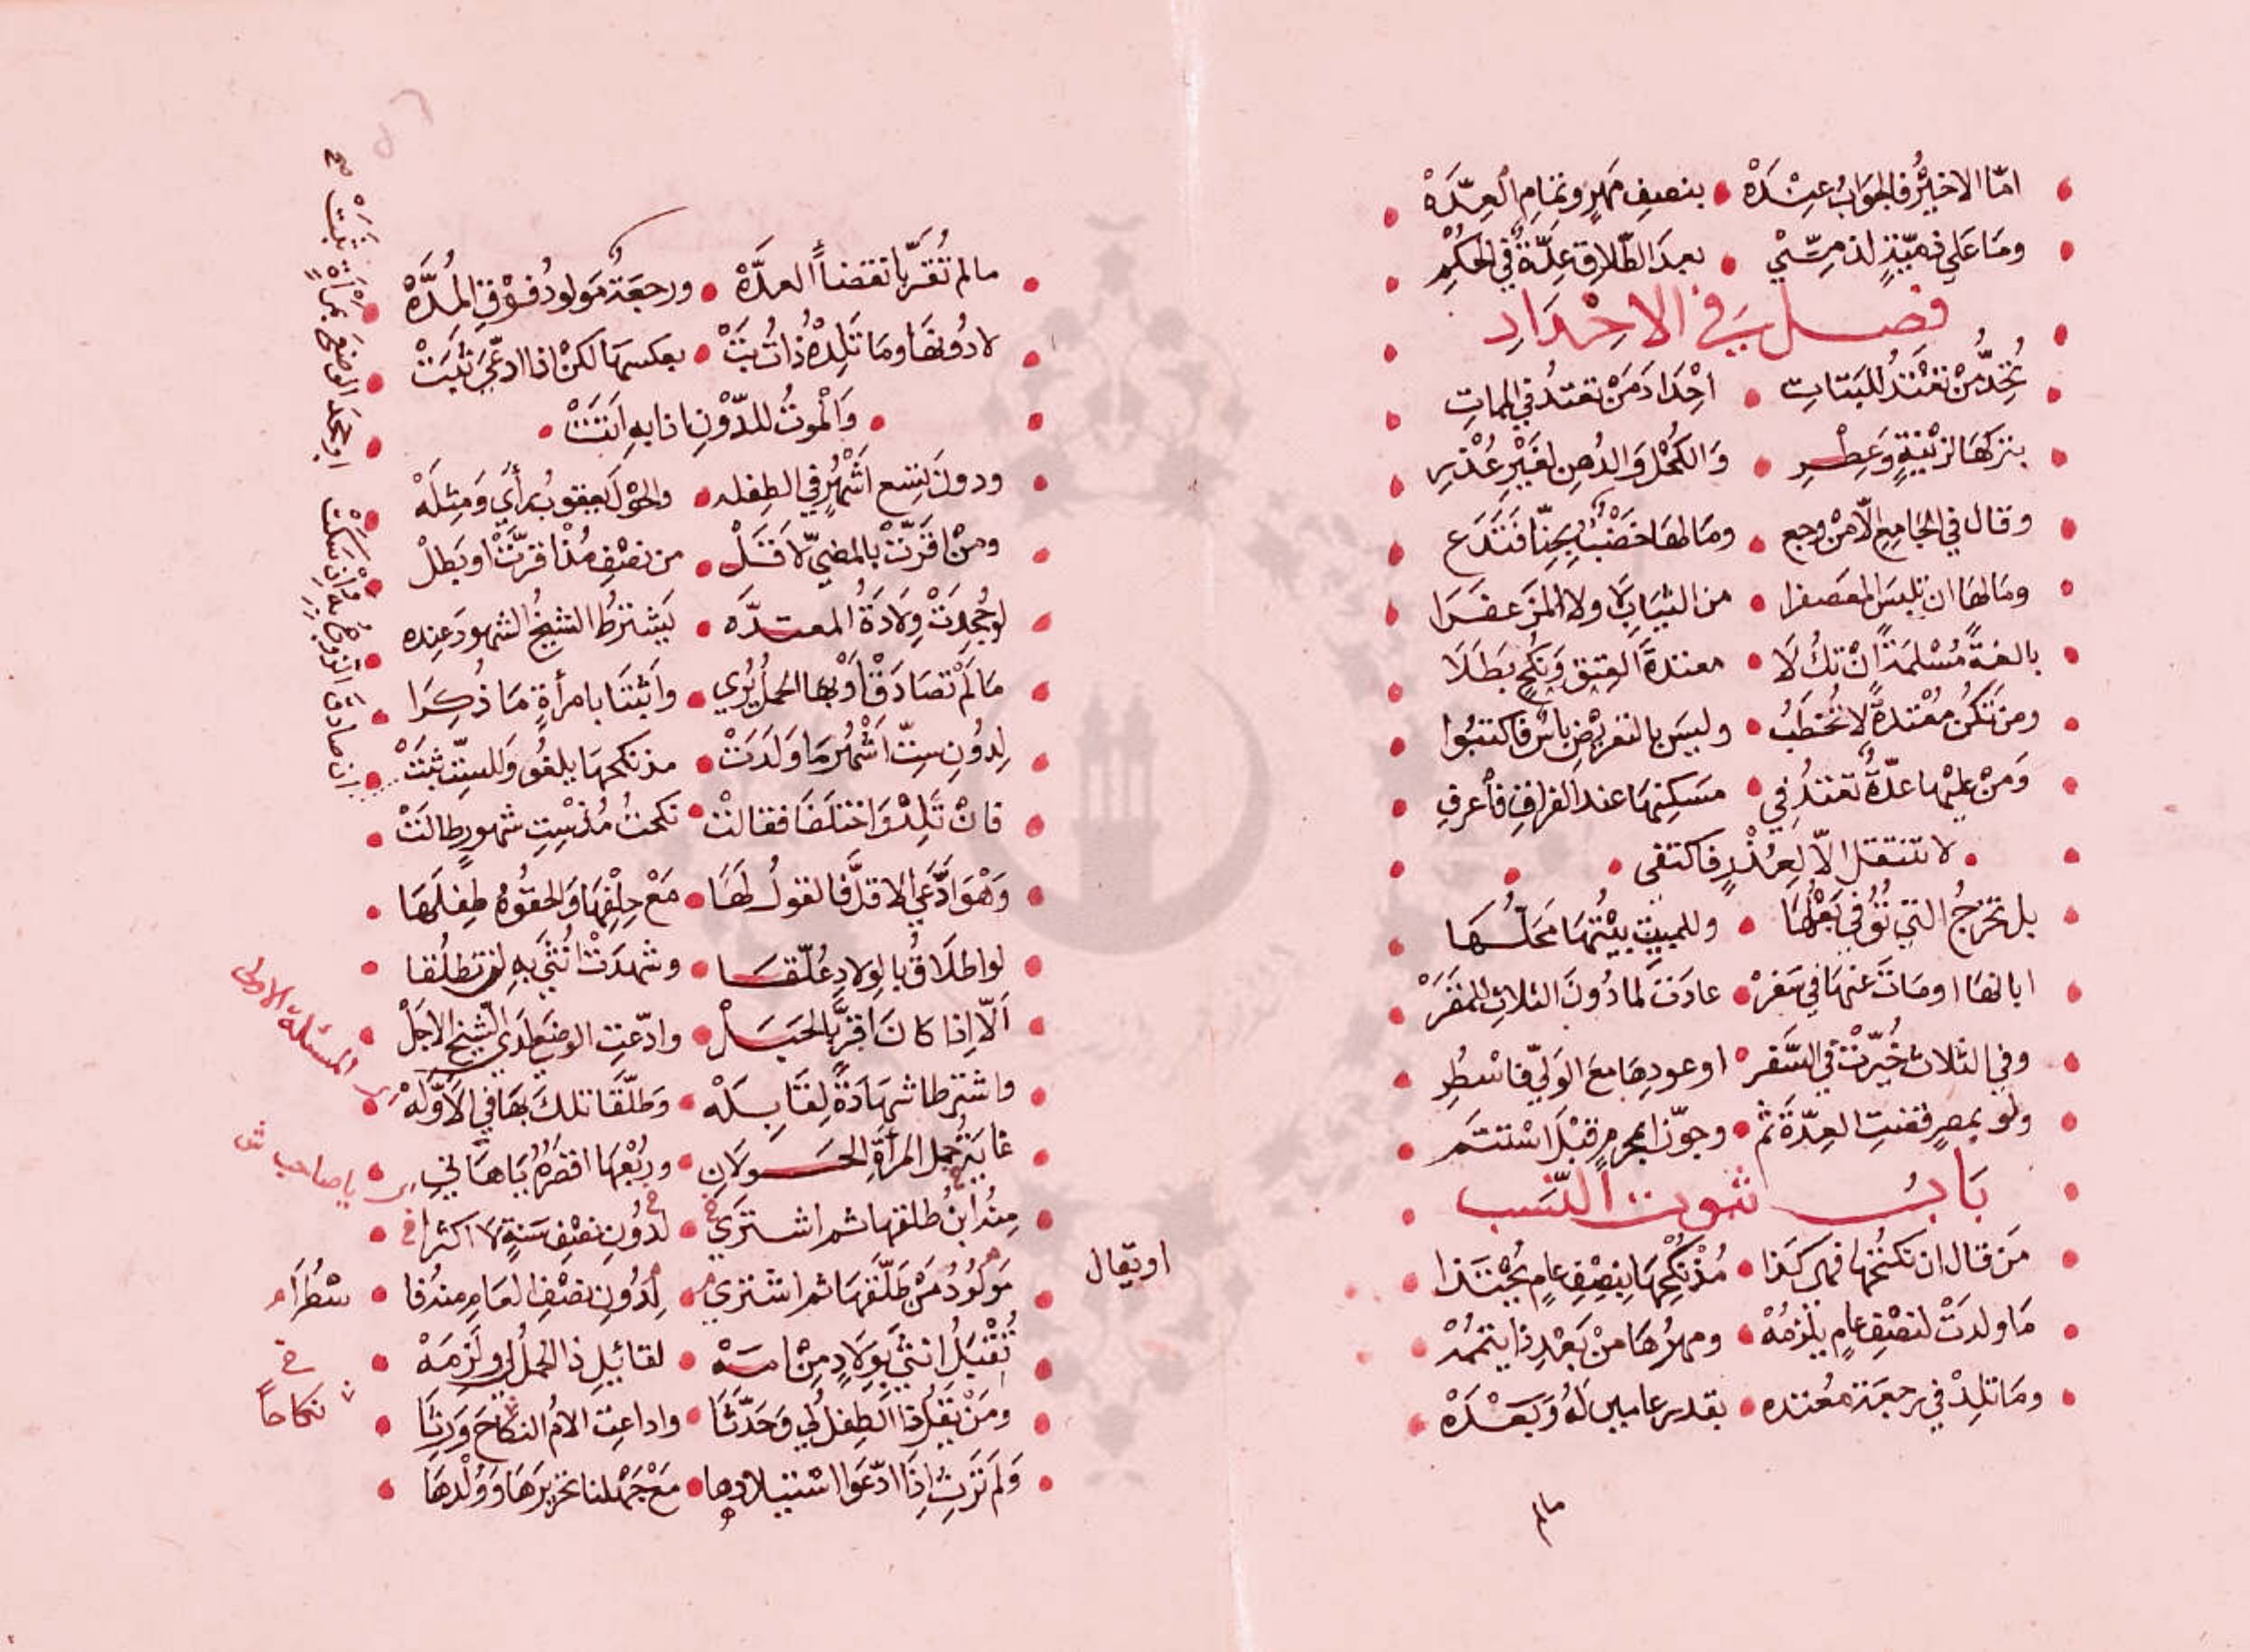 امّا الاخيرُ فالجوابُ عندَهْ • بنصفِ مَهرٍ وتمامِ العِدَّهْ
ومَا عَلي ذميّةٍ لذميّ • بعدَ الطّلاقِ عِدّةٌ في الحكمِ
فصل في الاحداد
تُحِدُّ مَنْ تعْتَدُّ للبَتاتِ • احْدادَ مَنْ تعتدُ في المماتِ
بتركهَا لزينةٍ وَعِطْرِ • وَالكُحْل وَالدُهنِ لغَيْرِ عُذْرِ
وقال في الجَامعِ الّا مِنْ وجع • ومَا لهَا خضْبٌ بحِنّا فتَدَع
ومَا لهَا ان تلبسَ المعَصفرا • من الثيَابِ لَا ولا المزَعفَرَا
بالغةً مُسْلمَةً انْ تكُ لَا • معتدةَ العِتق وَنكحٍ بَطَلَا
ومَن تكُن مُعْتدةً لا تُخطَبُ • وليسَ بالتعريْضِ باسٌ فاكتبُوا
وَمَنْ عليْها عدّةٌ تعتدُ في • مسَكِنهَا عندَ الفراقِ فأعرفِ
• لا تنتقل الّا لِعُذْرٍ فاكتفى •
بل تخرْجُ التي تُوُفي بَعْلُهَا • وللمبيتِ بيْتُهَا محَلّهَا
ابانهَا او مَاتَ عَنهَا في سَفرْ • عادَتَ لمَا دُونَ الثلاثِ للمقَرْ
وفي الثلاث خُيّرَتْ في السَّفر • او عودِهَا معَ الوَليّ فاسْطُرِ
ولو بمصرٍ قضتِ العِدّةَ ثم • وجوّزا بمحرمٍ قبْلَ اسْتتم
بَابُ ثبوت النّسَب
مَن قال ان نكحتُها فهي كذا • مُذْ نكْحِهَا بنِصْفِ عامٍ يُحْتذا
مَا ولدَتْ لنصْفِ عامٍ يلْزمُهْ • ومهرُهَا مِنْ بَعْدِ ذا يتممُهْ
ومَا تلِدْ في رجعَة معُتده • بقدر عامين لَهُ وَبَعْدَهْ
مالم
مالم تُقرَّ بانقضاأ العدَّهْ • ورجعَةٌ مَولودُ فوْق المُدَّهْ
لا دُونهَا ومَا تَلِدْهُ ذاتُ بتْ • بعكسهَا لكنْ اذا ادعيَ ثبَتْ
• وَالموتُ للدّوْنِ اذا بهِ اَتتْ •
ودونَ تِسع اَشهُرٍ في الطِفله • والحَوْل يعقوبُ رأي وَمِثلَهْ
ومنْ اقرَتْ بالمضيّ لاَقلْ • من نصْفِ مُذْ اقرَّتْ او بَطلْ
لو جُحِدَتْ ولَادَةُ المعتدَّه • يَشترطُ الشيخُ الشهودَ عِنده
مَا لَمْ تَصَادَقْ اَوْ بها الحملُ يُري • واَثبتَا بامرأةٍ مَا ذُكِرَا
لِدُونِ ستّ اَشهُر مَا وَلَدَتْ • مذ نكحهَا يلغُو وَللستّ ثبَتْ
فانْ تَلِدْ وَاختلفَا فقالتْ • نكحتُ مُذْ سِتِ شهورٍ طالَتْ
وَهْوَ ادَّعي الاَقلَّ فالقولُ لهَا • مَعْ حِلْفِهَا وَالحقُوهُ طِفلَهَا
لو اطلَاقٌ بالوِلادِ عُلّقَا • وشهدَتْ انُثَي بهِ لن تطلُقا
اَلّا اِذا كانَ اقرَّ بالحَبَلْ • وادّعتِ الوضعَ لدَي الشيخِ الاجَلْ
واشترطا شهَادَةً لِقابِلَهْ • وَطلّقَا تلكَ بهَا في الاَوّلَهْ
غايَةُ حمل المرأةِ الحَوْلَانِ • ورُبْعُهَا اقصَرُهُ يَا هَاني
مِنهُ ابنُ طلقها ثم اشتَري • لدُوْنِ نصْفِ سَنةٍ لا اكثرا
مَوْلُودُ مَنْ طَلّقهَا ثم اشتري • لِدُونِ نصْفِ العَامِ مِنهُ
تُقْبَلُ انثي بِوِلَادٍ مِنْ امَهْ • لقائِلٍ ذا الحملُ لي ولَزمَهْ
ومَنْ يَقُلْ ذا الطِفلُ لي وَحَدَّثَا • واداعت الامُ النكَاحَ وَرِثَا
وَلَم تَرِثْ اِذَا ادّعَوَا استيلادها • مَعْ جَهْلنا تحريرَهَا وَوُلْدهَا
او يقال
المسئلة الاولى
يا صاحب
نكاحاً